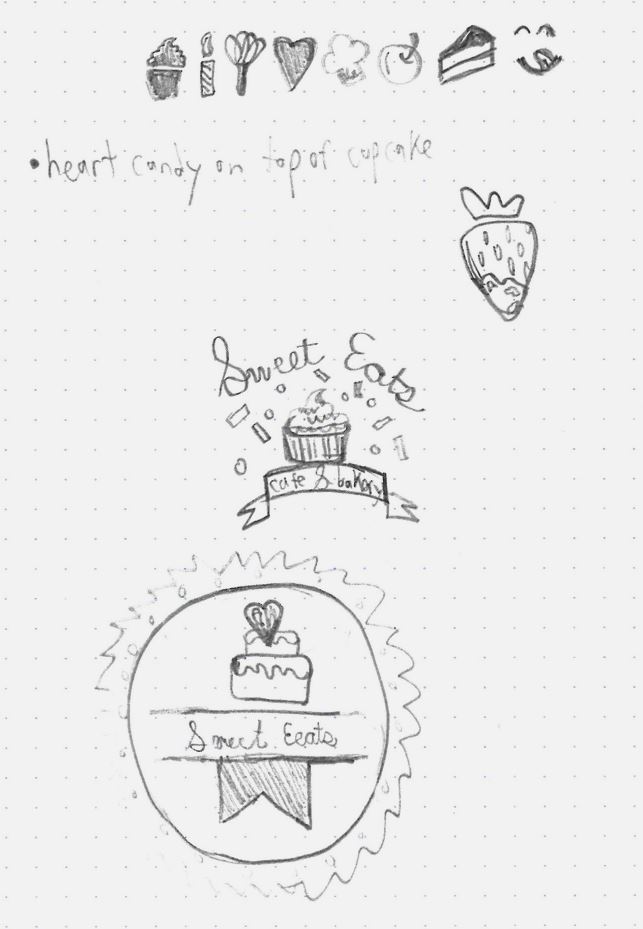 • heart candy on top of cupcake
Sweet Eats
cafe & bakery
Sweet Eeats